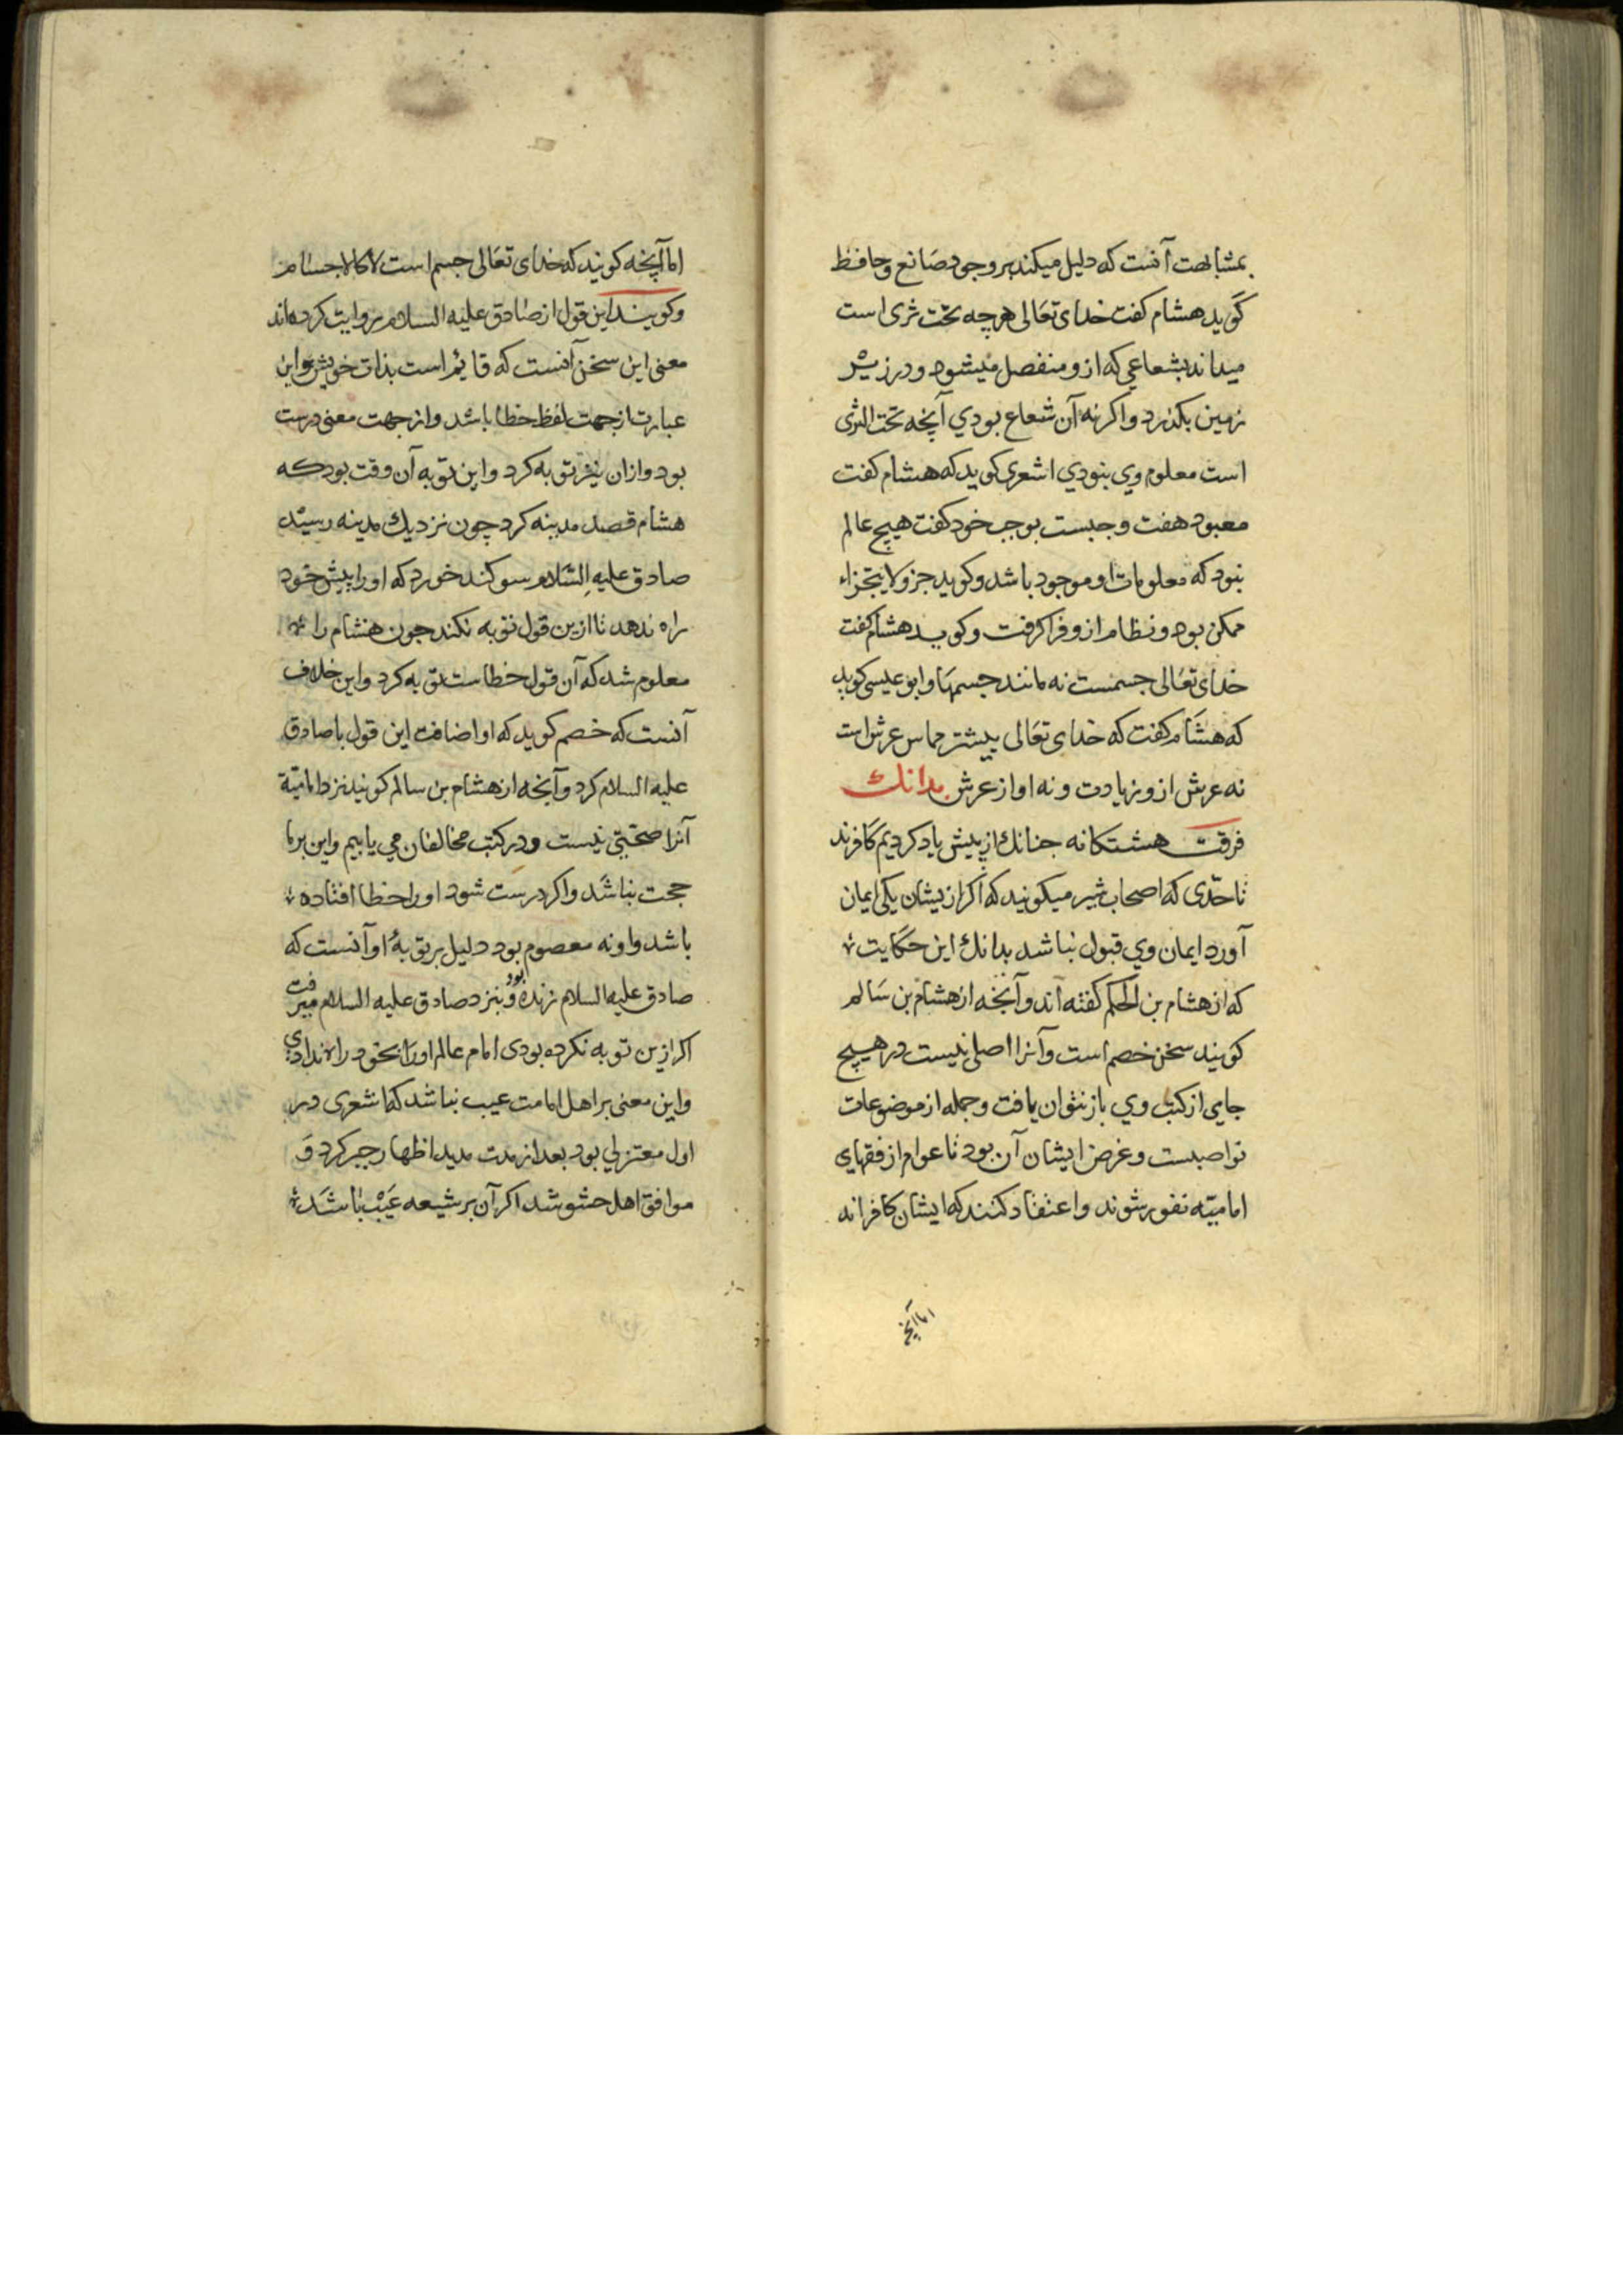 بمشابهت آنست که دلیل میکند بر وجود صانع و حافظ
کوید هشام کفت خدای تعالی هرچه تحت ثری است
میداند بشعاعی که ازو منفصل میشود و در زیر
زمین بکذرد و اکر نه آن شعاع بودی آنچه تحت الثری
است معلوم وی نبودی اشعری کوید که هشام کفت
معبود هفت وجبست بوجب خود کفت هیچ عالم
نبود که معلومات او موجود باشد و کوید جزو لا یتجزاء
ممکن بود و نظام ازو فرا کرفت و کوید هشام کفت
خدای تعالی جسمست نه مانند جسمها و ابو عیسی کوید
که هشام کفت که خدای تعالی بیشتر مماس عرش است
نه عرش ازو زیادت و نه او از عرش بدانک
فرقت هشتکانه جنانک از پیش یاد کردیم کافرند
تا حدی که اصحاب میکویند که اکر ازیشان یکی ایمان
آورد ایمان وی قبول نباشد بدانک این حکایت
که از هشام بن الحکم کفته اند و آنچه از هشام بن سالم
کویند سخن خصم است و آنرا اصلی نیست در هیچ
جای از کتب وی باز نتوان یافت و جمله از موضوعات
نواصبست و غرض ایشان آن بود تا عوام از فقهای
امامیّه نفور شوند و اعتقاد کنند که ایشان کافرانه
اما آنچه
اما آنچه کویند که خدای تعالی جسم است لا کالاجسام
و کویند این قول از صادق علیه السلام روایت کرده اند
معنی این سخن آنست که قایم است بذات خویش و این
عبارت از جهت لفظ خطا باشد و از جهت معنی درست
بود و ازان نیز توبه کرد و این توبه آن وقت بود که
هشام قصد مدینه کرد چون نزدیك مدینه رسید
صادق علیه السّلام سوکند خورد که او را پیش خود
راه ندهد تا ازین قول توبه نکند جون هشام را
معلوم شد که آن قول خطاست توبه کرد و این خلاف
آنست که خصم کوید که او اضافت این قول با صادق
علیه السلام کرد و آنچه از هشام بن سالم کویند نزد امامیّة
آنرا صحّتی نیست و در کتب مخالفان می یابیم و این بر ما
حجت نباشد و اکر درست شود او را خطا افتاده
باشد و او نه معصوم بود دلیل بر توبهٔ او آنست که
صادق علیه السلام زنده بود و بنزد صادق علیه السلام میرفت
اکر ازین توبه نکرده بودی امام عالم او را بخود راه ندادی
و این معنی بر اهل امامت عیب نباشد که اشعری در
اول معتزلی بود بعد از مدت مدید اظهار جبر کرد و
موافق اهل حشو شد اکر آن بر شیعه عیب باشد